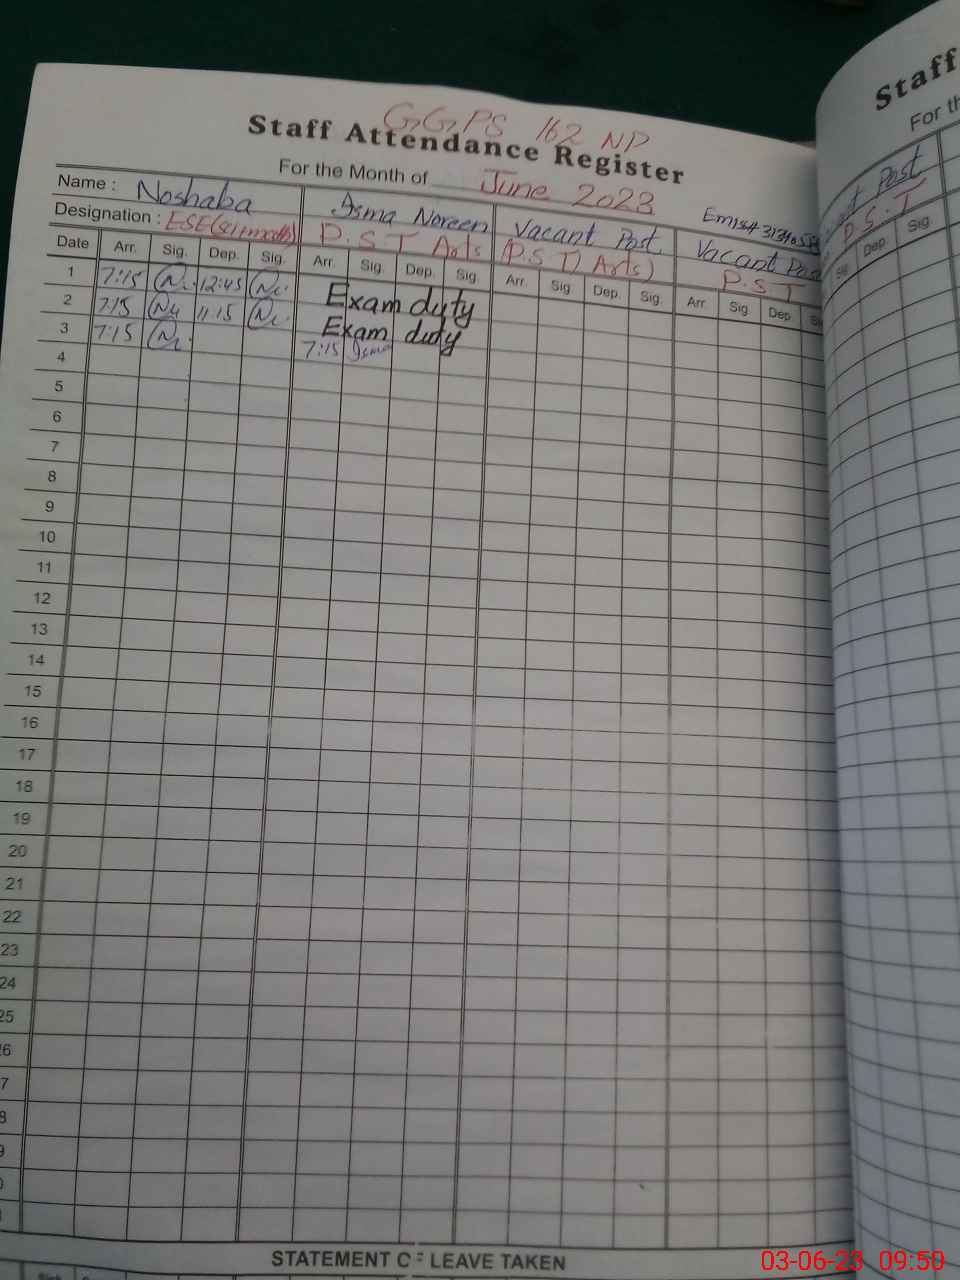 GGPS 162 NP
Staff Attendance Register
For the Month of June 2023
Emis# 3134
Name : Noshaba Asma Noreen Vacant Post Vacant Post
Designation : ESE(sci math) P.S.T Arts (P.S.T) Arts) P.S.T
Date Arr. Sig. Dep. Sig. Arr. Sig. Dep. Sig. Arr. Sig. Dep. Sig. Arr. Sig. Dep.
1 7:15 12:45 Exam duty
2 7:15 11:15 Exam duty
3 7:15 7:15 Asma
4
5
6
7
8
9
10
11
12
13
14
15
16
17
18
19
20
21
22
23
24
25
26
7
8
9
STATEMENT OF LEAVE TAKEN
Staff
For th
Post
P.S.T
Sig. Dep. Sig.
03-06-23 09:50